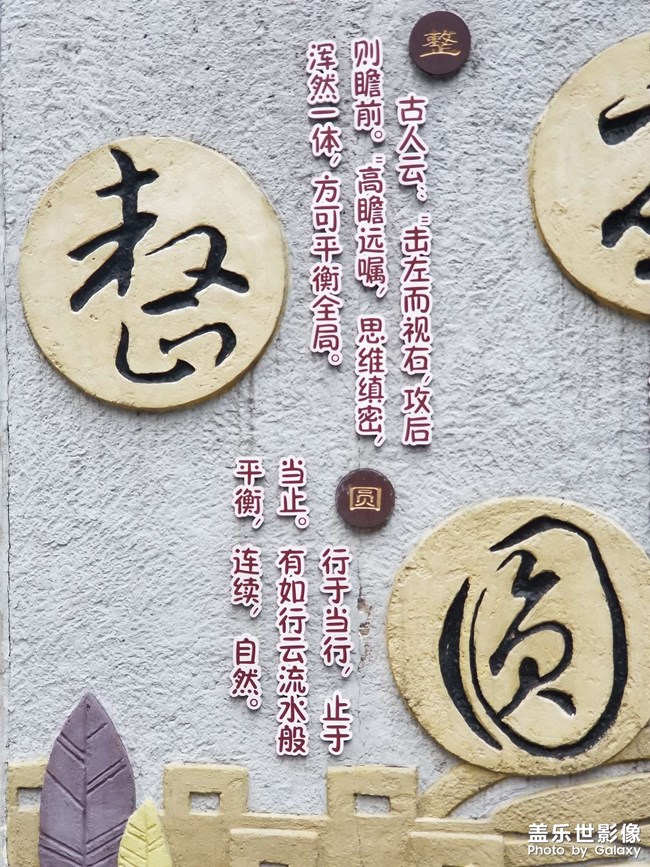 整
古人云:“击左而视右,攻后
则瞻前。”高瞻远嘱,思维缜密,
浑然一体,方可平衡全局。
整
圆
行于当行,止于
当止。有如行云流水般
平衡,连续,自然。
圆
盖乐世影像
Photo by Galaxy